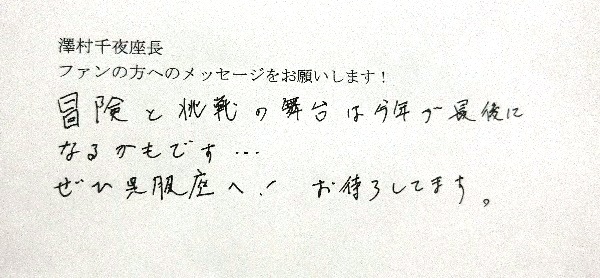 澤村千夜座長
ファンの方へのメッセージをお願いします！
冒険と挑戦の舞台は今年が最後に
なるかもです…
ぜひ呉服座へ！ お待ちしてます。